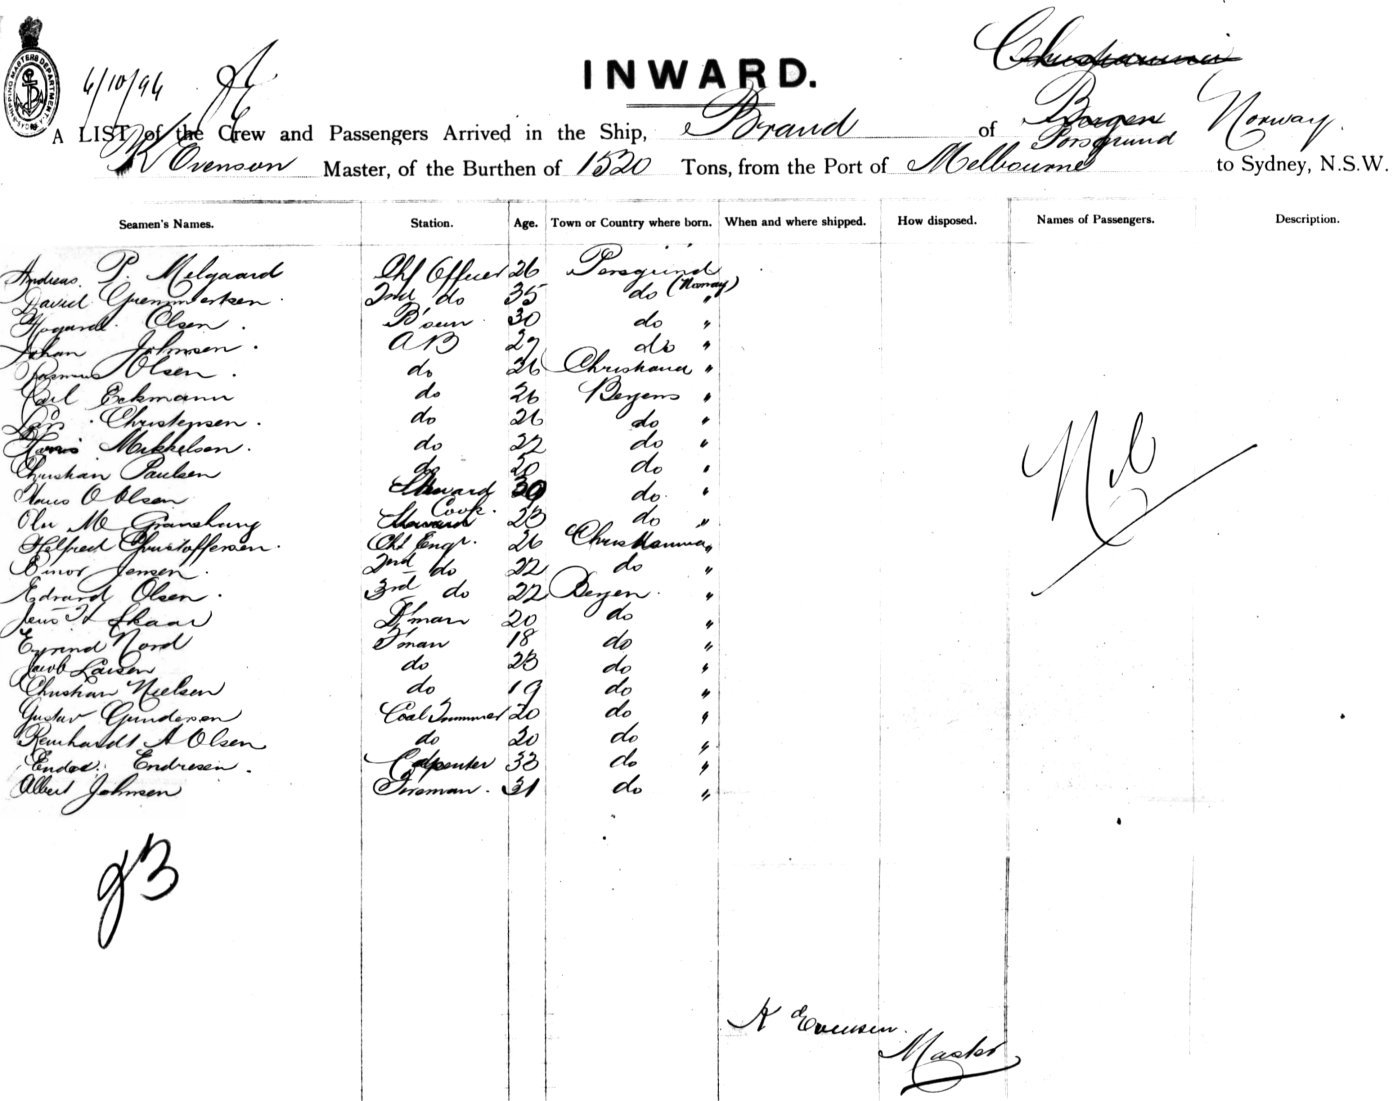 6/10/96
INWARD.
Christiania
Bergen Norway.
A LIST of the Crew and Passengers Arrived in the Ship, Brand of Porsgrund
K Evenson Master, of the Burthen of 1520 Tons, from the Port of Melbourne to Sydney, N.S.W.
Seamen's Names. Station. Age. Town or Country where born. When and where shipped. How disposed. Names of Passengers. Description.
Andreas P. Melgaard Chf Officer 26 Porsgrund
David 2nd do 35 do (Norway)
Olsen. B'sun 30 do "
Johan Johnsen. AB 27 do "
Rasmus Olsen. do 26 Christiania "
Carl Eckmann do 26 Bergens "
Lars Christensen. do 26 do "
Mikkelsen. do 22 do "
Christian Paulsen do 20 do "
Hans O Olsen Steward 39 do "
Ole M Cook. 23 do "
Helfred Christoffersen. Chf Engr. 26 Christiania "
Einar Jensen. 2nd do 22 do "
Edvard Olsen. 3rd do 22 Bergen. "
Jens Skaar D'man 20 do "
Eyvind Nord F'man 18 do "
Jacob Larsen do 23 do "
Christian Nielsen do 19 do "
Gustav Gundersen Coal Trimmer 20 do "
Reinhardt A Olsen do 20 do "
Endre Endresen. Carpenter 33 do "
Albert Johnsen Fireman. 31 do "
Nil
23
K Evensen.
Master